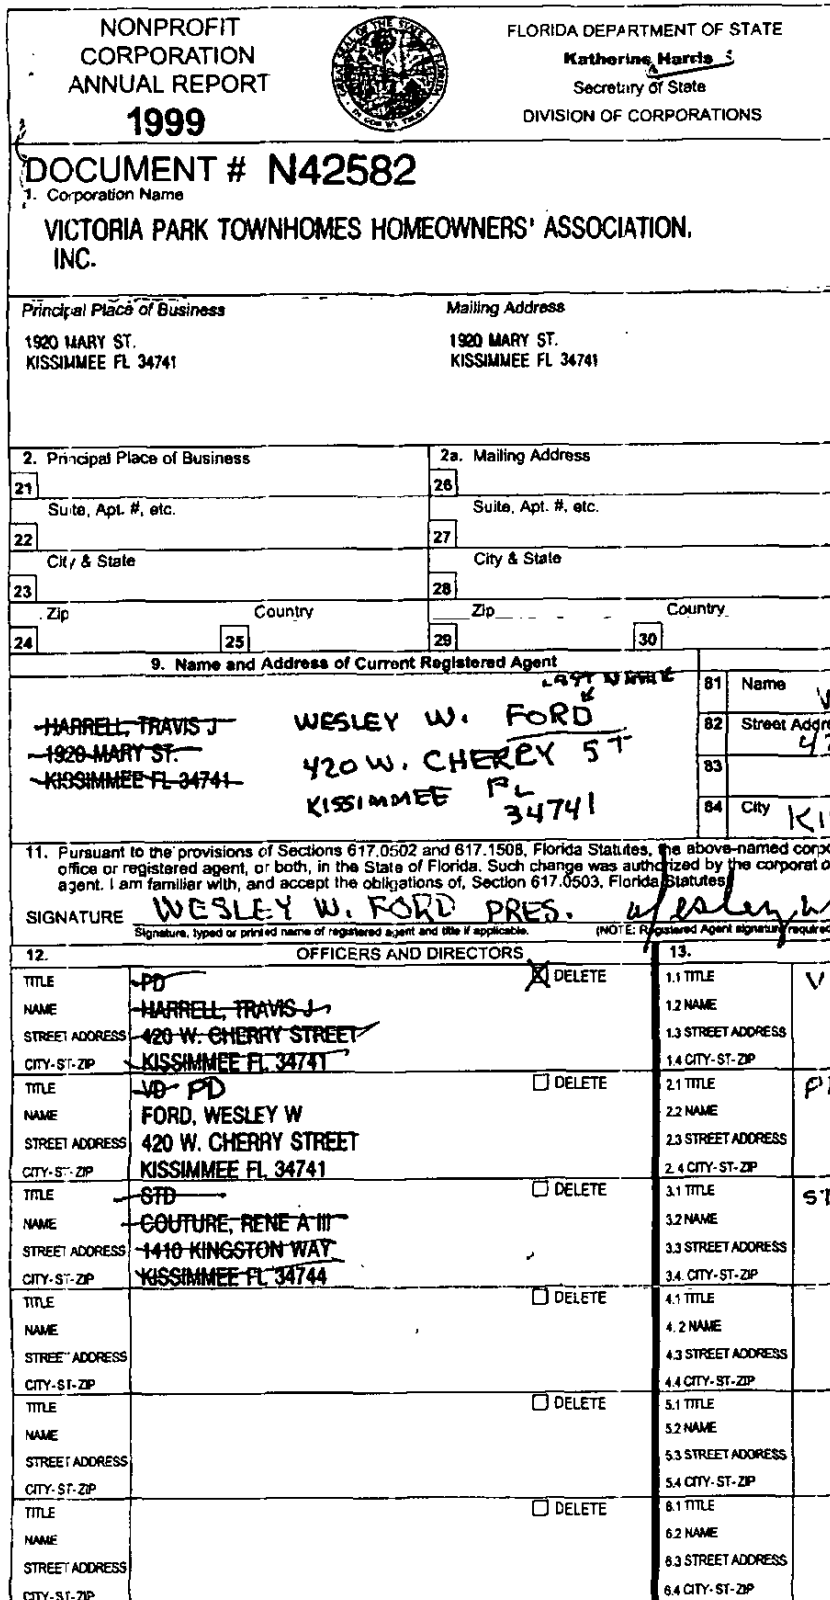 NONPROFIT
CORPORATION
ANNUAL REPORT
1999
FLORIDA DEPARTMENT OF STATE
Katherine Harris
Secretary of State
DIVISION OF CORPORATIONS
DOCUMENT # N42582
1. Corporation Name
VICTORIA PARK TOWNHOMES HOMEOWNERS' ASSOCIATION,
INC.
Principal Place of Business
Mailing Address
1920 MARY ST.
KISSIMMEE FL 34741
1920 MARY ST.
KISSIMMEE FL 34741
2. Principal Place of Business
2a. Mailing Address
21
26
Suite, Apt. #, etc.
Suite, Apt. #, etc.
22
27
City & State
City & State
23
28
Zip
Country
Zip
Country
24
25
29
30
9. Name and Address of Current Registered Agent
LAST NAME
HARRELL, TRAVIS J
1920 MARY ST.
KISSIMMEE FL 34741
WESLEY W. FORD
420 W. CHERRY ST
KISSIMMEE FL
34741
81 Name
82 Street Addre
83
84 City
KI
11. Pursuant to the provisions of Sections 617.0502 and 617.1508, Florida Statutes, the above-named corpo
office or registered agent, or both, in the State of Florida. Such change was authorized by the corporatio
agent. I am familiar with, and accept the obligations of, Section 617.0503, Florida Statutes
SIGNATURE WESLEY W. FORD PRES. Wesley W
Signature, typed or printed name of registered agent and title if applicable. (NOTE: Registered Agent signature required
12. OFFICERS AND DIRECTORS 13.
TITLE PD DELETE
NAME HARRELL, TRAVIS J
STREET ADDRESS 420 W. CHERRY STREET
CITY-ST-ZIP KISSIMMEE FL 34741
TITLE VD PD DELETE
NAME FORD, WESLEY W
STREET ADDRESS 420 W. CHERRY STREET
CITY-ST-ZIP KISSIMMEE FL 34741
TITLE STD DELETE
NAME COUTURE, RENE A III
STREET ADDRESS 1410 KINGSTON WAY
CITY-ST-ZIP KISSIMMEE FL 34744
TITLE DELETE
NAME
STREET ADDRESS
CITY-ST-ZIP
TITLE DELETE
NAME
STREET ADDRESS
CITY-ST-ZIP
TITLE DELETE
NAME
STREET ADDRESS
CITY-ST-ZIP
1.1 TITLE V
1.2 NAME
1.3 STREET ADDRESS
1.4 CITY-ST-ZIP
2.1 TITLE P
2.2 NAME
2.3 STREET ADDRESS
2.4 CITY-ST-ZIP
3.1 TITLE ST
3.2 NAME
3.3 STREET ADDRESS
3.4. CITY-ST-ZIP
4.1 TITLE
4.2 NAME
4.3 STREET ADDRESS
4.4 CITY-ST-ZIP
5.1 TITLE
5.2 NAME
5.3 STREET ADDRESS
5.4 CITY-ST-ZIP
6.1 TITLE
6.2 NAME
6.3 STREET ADDRESS
6.4 CITY-ST-ZIP